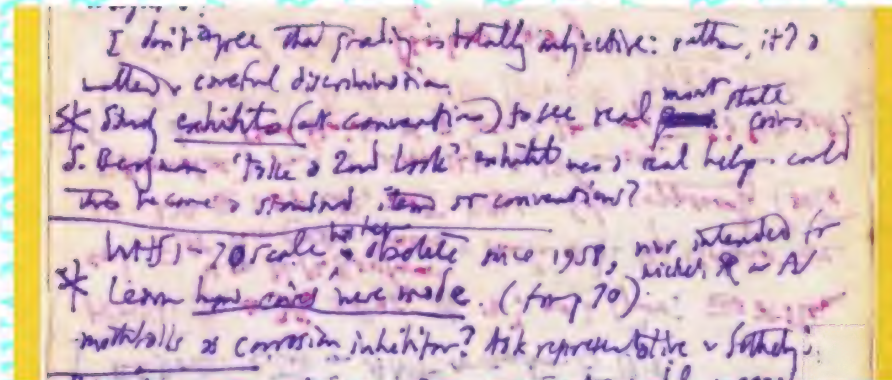 I don't agree that grading is totally subjective: rather, it's a
matter of careful discrimination.
* Study exhibits (at conventions) to see real mint state coins
S. Bergman "Take a 2nd Look" exhibit was a real help. could
this become a standard item at conventions?
WHS 1-70 scale has been obsolete since 1958, nor intended for
nickel, AR or AV
* Learn how coins were made. (
mothballs as corrosion inhibitor? Ask representative